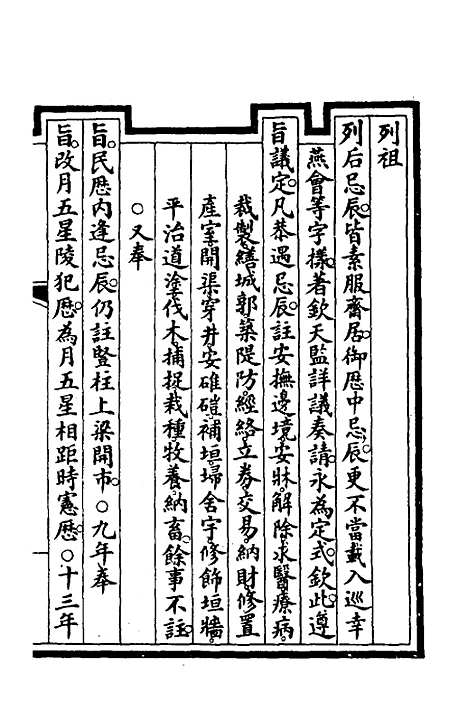 列祖
列后忌辰。皆素服齋居。御歴中忌辰。更不當載入巡幸
燕會等字樣。著欽天監詳議奏請。永為定式。欽此。遵
旨議定。凡恭遇忌辰。註安撫邊境。安牀。解除。求醫療病。
裁製。繕城郭。築隄防。經絡。立券。交易。納財。修置
產室。開渠穿井。安碓磑。補垣。埽舍宇。修飾垣牆。
平治道塗。伐木。捕捉。栽種。牧養。納畜。餘事不註。
○又奉
旨。民歴內逢忌辰。仍註豎柱上梁開市。○九年奉
旨。改月五星陵犯歴。為月五星相距時憲歴。○十三年